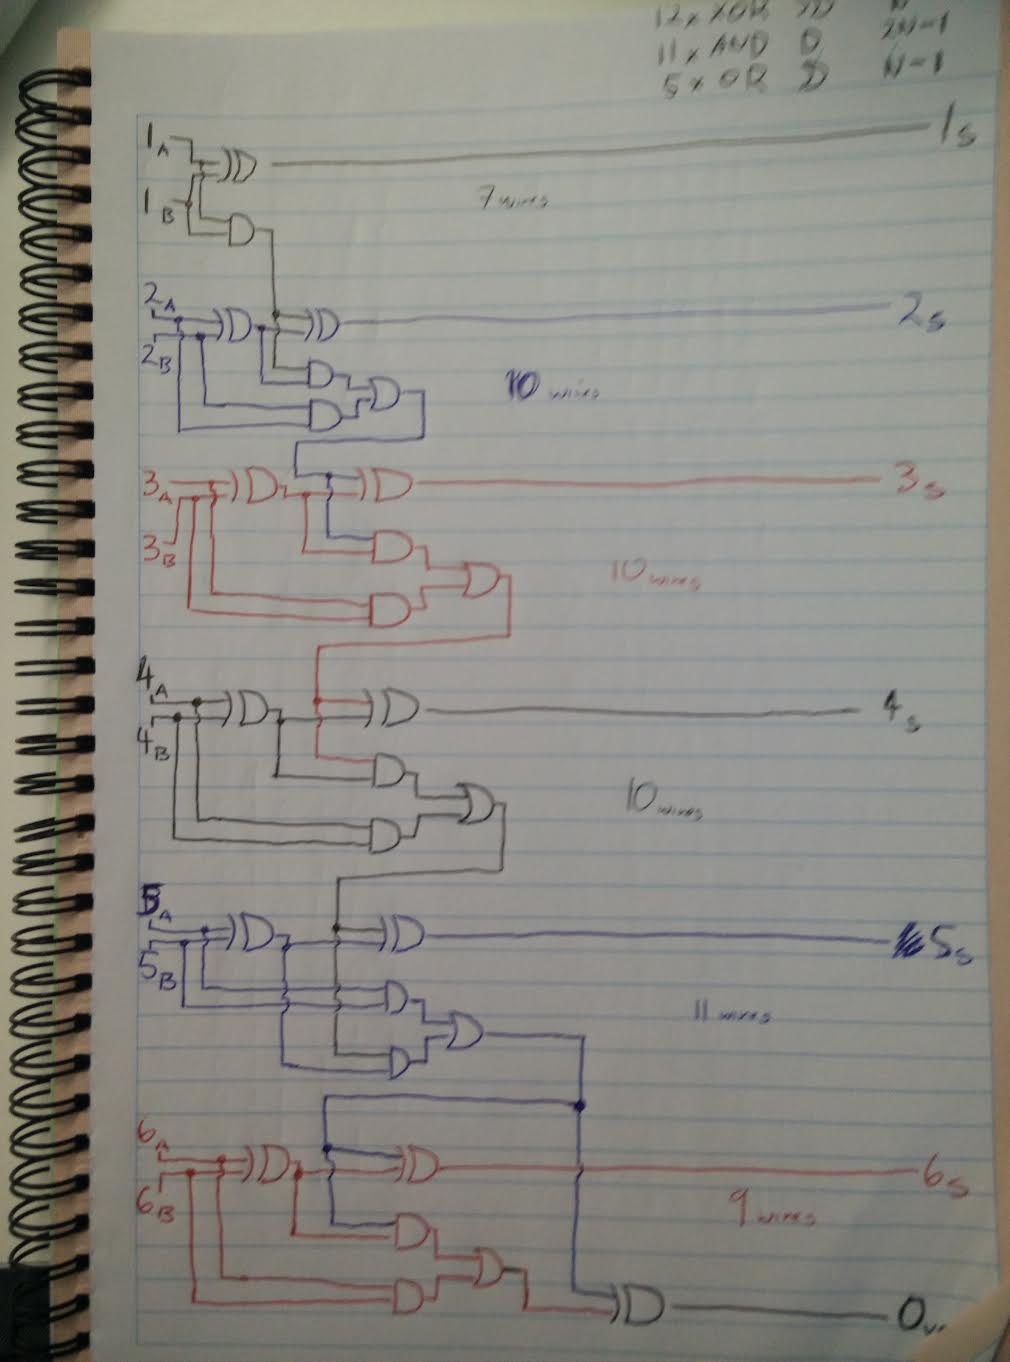 12 x XOR
11 x AND D 2N-1
5 x OR N-1
1A
1S
1B
7 wires
2A
2S
2B
10 wires
3A
3S
3B
10 wires
4A
4S
4B
10 wires
5A
5S
5B
11 wires
6A
6S
6B
9 wires
Ov.